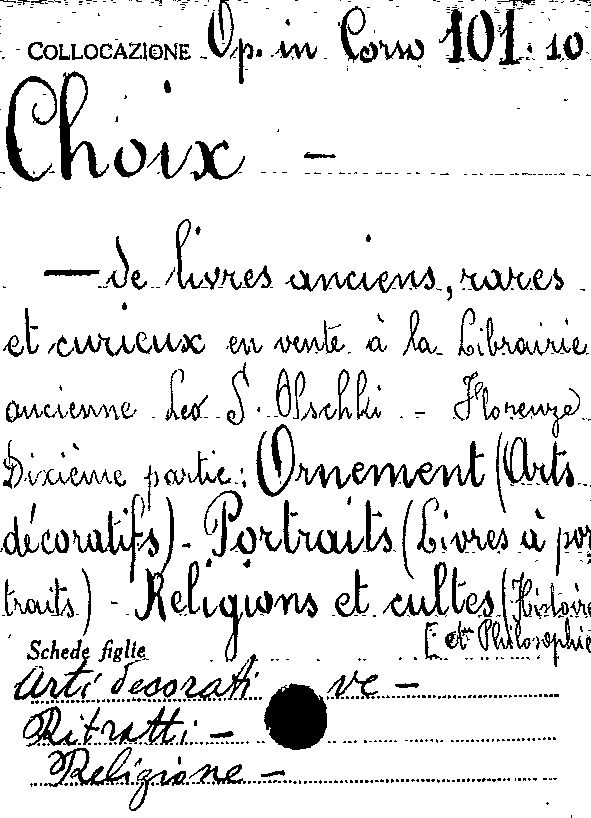 COLLOCAZIONE Op. in Corso 101. 10
Choix -
— de livres anciens, rares
et curieux en vente à la Librairie
ancienne Leo S. Olschki - Florenze
Dixième partie: Ornement (Arts
décoratifs) - Portraits (Livres à por
traits) - Religions et cultes (Histoire
et Philosophie
Schede figlie
Arti decorati ve -
Ritratti -
Religione -